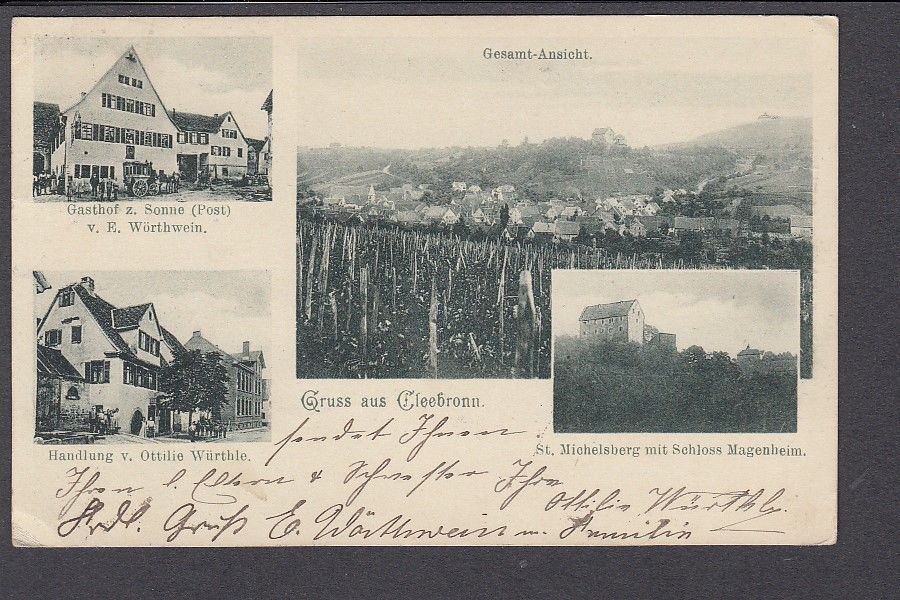 Gesamt-Ansicht.
Gasthof z. Sonne (Post)
v. E. Wörthwein.
Gruss aus Cleebronn.
Handlung v. Ottilie Würthle.
St. Michelsberg mit Schloss Magenheim.
sendet Ihnen
Ihren l. Eltern & Schwester Ihre
Ottilie Würthle.
Frdl. Gruß E. Wörthwein u. Familie